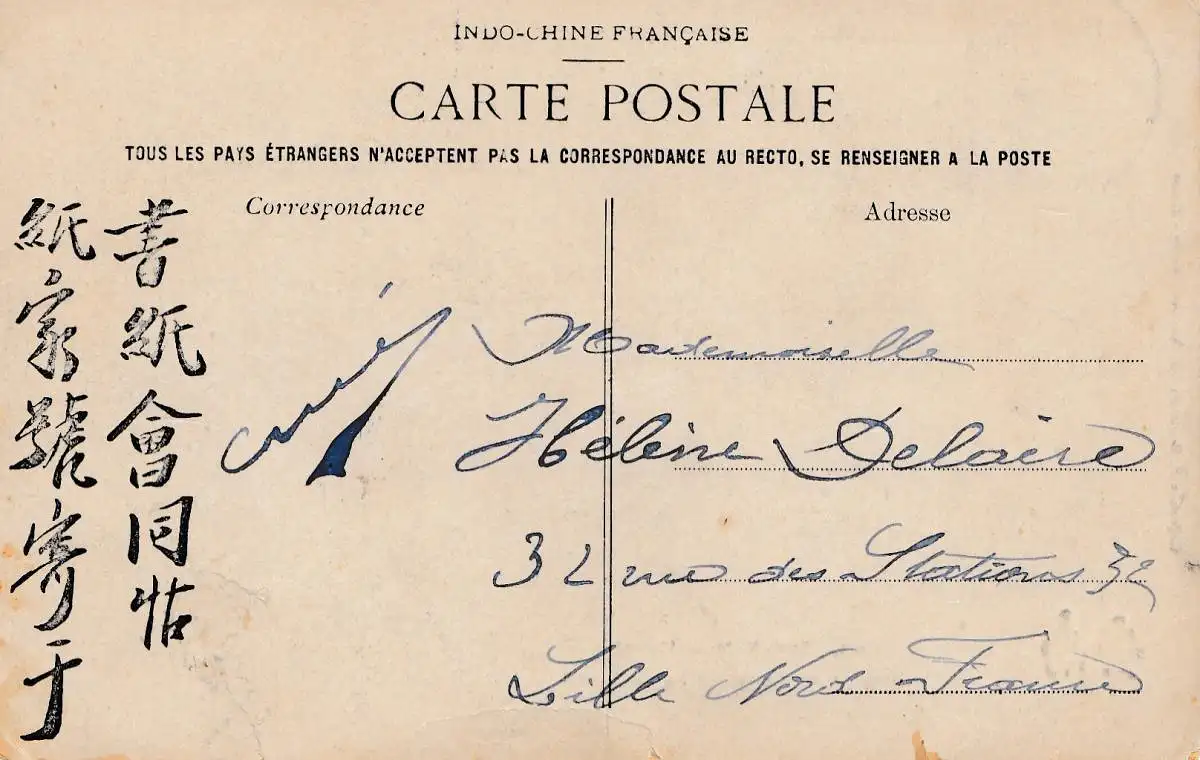 INDO-CHINE FRANÇAISE
CARTE POSTALE
TOUS LES PAYS ÉTRANGERS N'ACCEPTENT PAS LA CORRESPONDANCE AU RECTO, SE RENSEIGNER A LA POSTE
Correspondance
Adresse
書紙會同怗
紙家號寄于
Mademoiselle
Hélène Delaire
32 rue des Stations 32
Lille Nord France